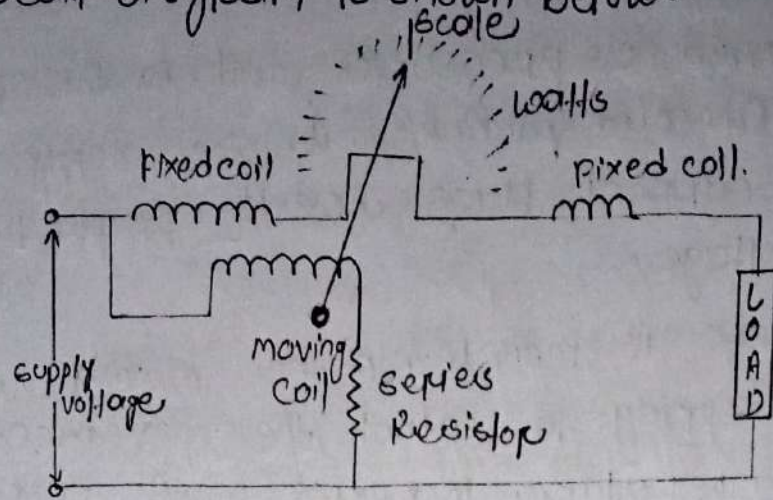 is shown below
scale
watts
Fixed coil
Fixed coil.
supply
voltage
moving
coil
series
Resistor
LOAD